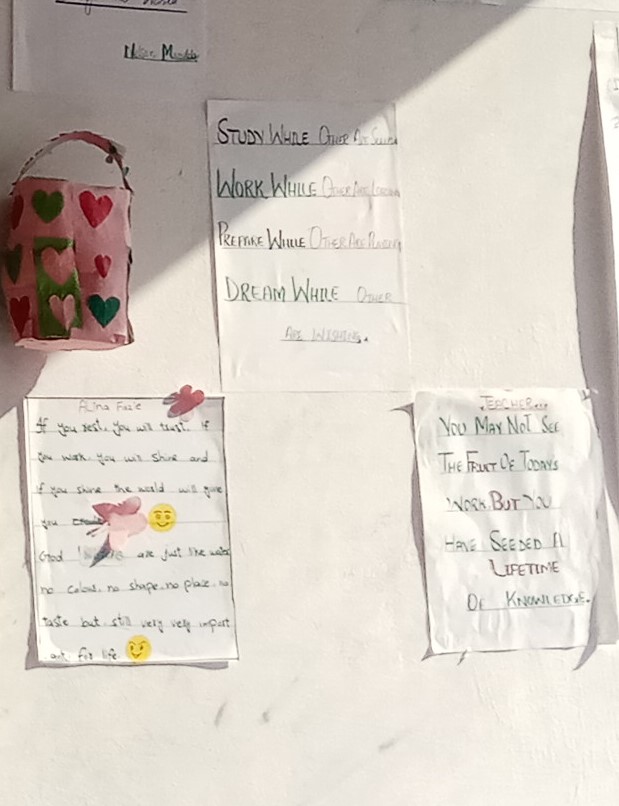 Nelson Mandela
STUDY WHILE OTHER ARE SLEEPING
WORK WHILE OTHER ARE LOAFING
PREPARE WHILE OTHER ARE PLAYING
DREAM WHILE OTHER
ARE WISHING.
Alina Fazie
If you rest, you will rust. If
you work, you will shine and
if you shine the world will give
you
God are just like water
no colour, no shape, no place, no
taste but still very very import
ant for life.
TEACHER...
YOU MAY NOT SEE
THE FRUIT OF TODAYS
WORK BUT YOU
HAVE SEEDED A
LIFETIME
OF KNOWLEDGE.